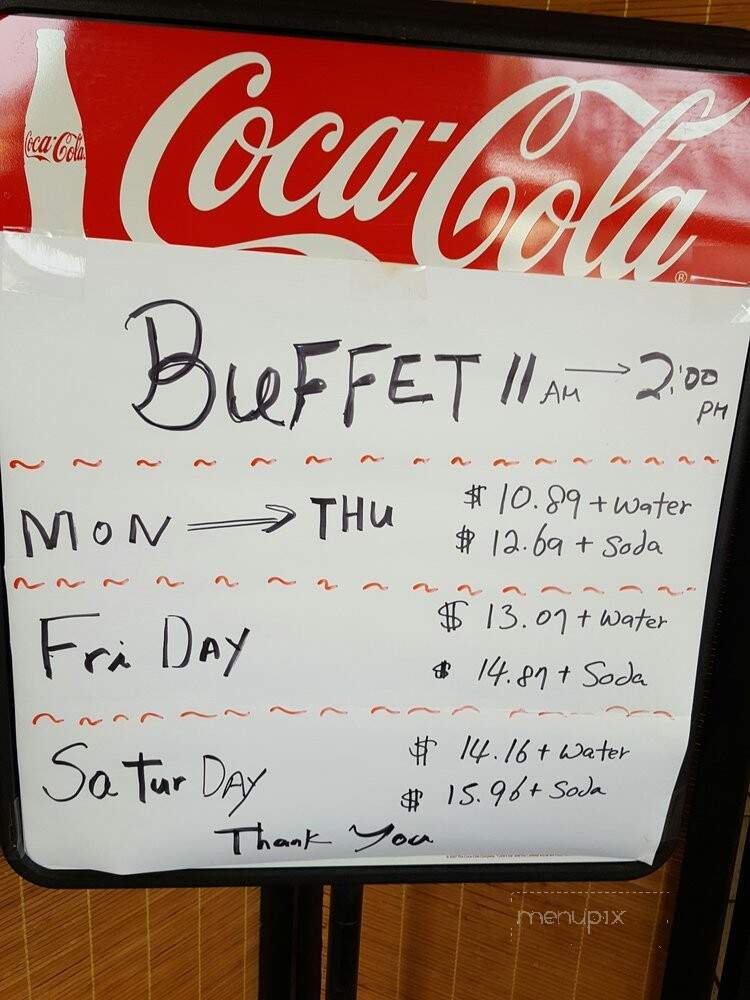 Coca-Cola
Coca-Cola ®
BuFFET 11 AM → 2:00 PM
MON → THU
$ 10.89 + water
$ 12.69 + Soda
Fri DAY
$ 13.07 + water
$ 14.87 + Soda
Satur DAY
$ 14.16 + water
$ 15.96 + Soda
Thank You
menupix